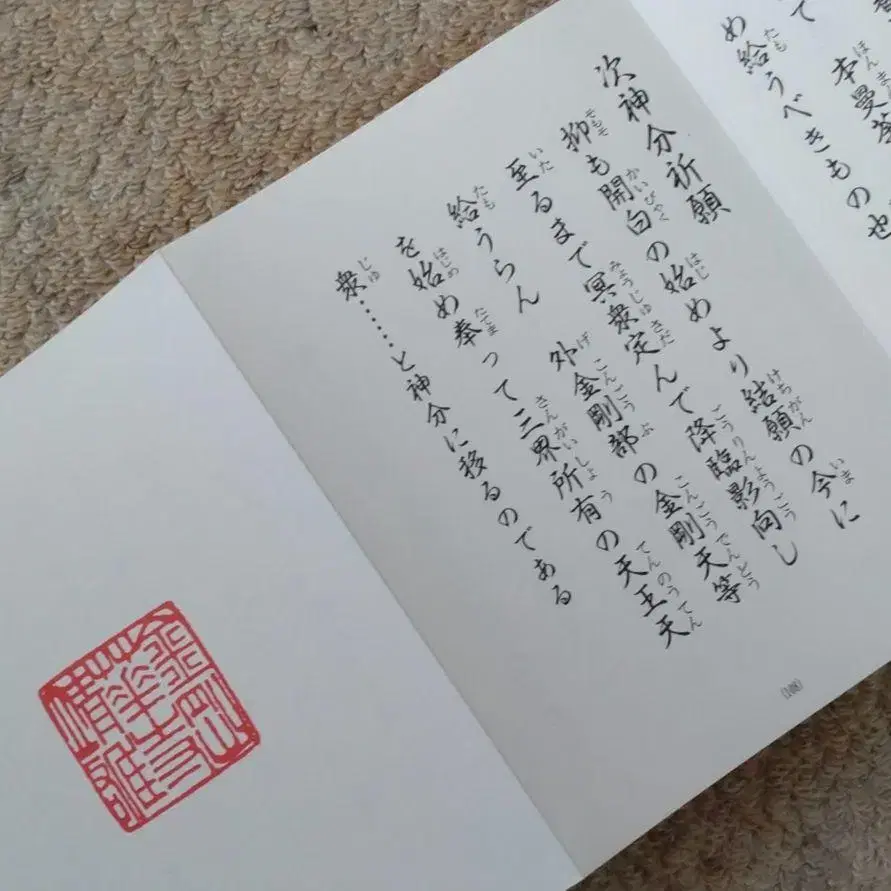 め給うべきもの也
次神分祈願
抑も開白の始めより結願の今に
至るまで冥衆定んで降臨影向し
給うらん　外金剛部の金剛天等
を始め奉って三界所有の天王天
衆……と神分に移るのである
(108)